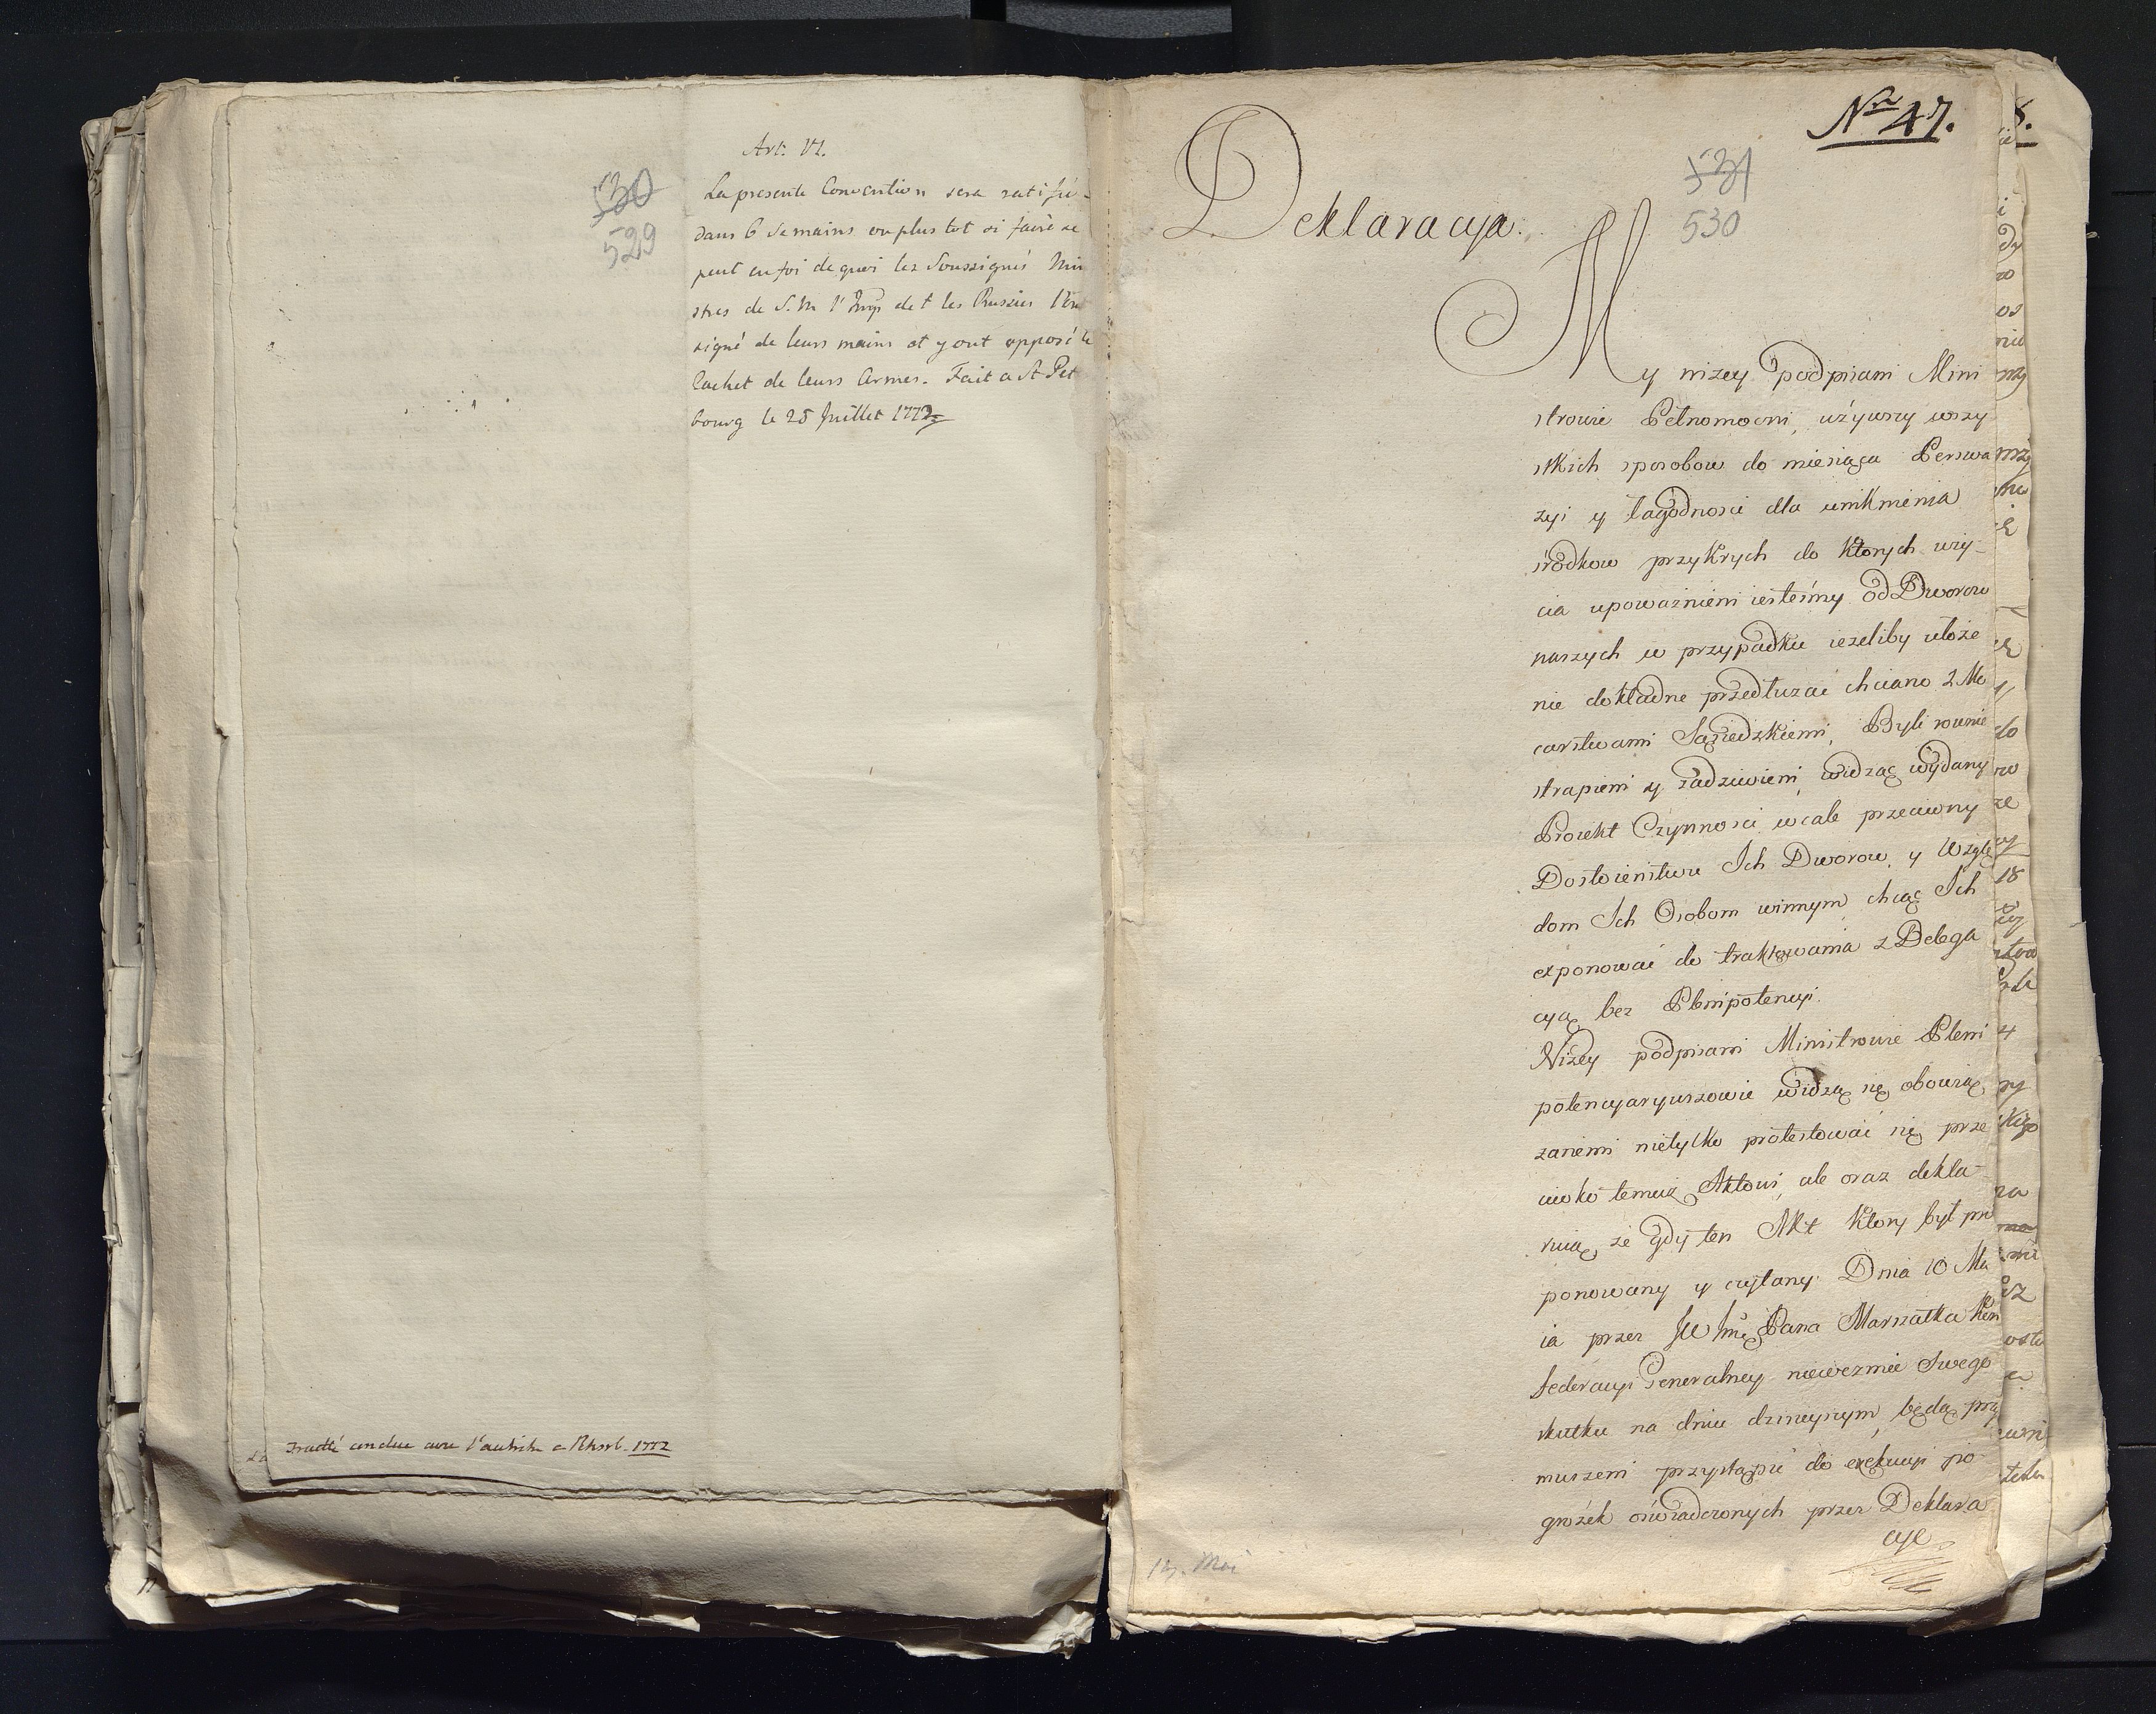 530
529
Art. VI.
La presente Convention sera ratifié
dans 6 Semains ou plus tot si faire se
peut en foi de quoi les Soussignés Mini
stres de S. M. l'Imp de t les Russies l'ont
signé de leurs mains et y ont apposé le
Cachet de leurs Armes. Fait a St Pet
bourg le 25 Juillet 1772
Traité conclue avec l'autriche a Petersb. 1772
Nro 47.
531
530
Deklaracya.
My nizey podpisani Mini
strowie Pełnomocni, używszy wszy
stkich sposobow do miesiąca Perswa
zyi y łagodnosci dla uniknienia
środkow przykrych do ktorych uży-
cia upoważnieni iesteśmy od Dworow
naszych w przypadku iezeliby ułoże
nie dokładne przedłuzać chciano z Mo
carstwami Sąsiedzkiemi, Byli rownie
strapieni y zadziwieni, widząc wydany
Proiekt Czynnosci wcale przeciwny
Dostoienstwu Ich Dworow, y Wzglę
dom Ich Osobom winnym, chcąc Ich
exponować do traktowania z Delega
cyą bez Plenipotencyi.
Niżey podpisani Ministrowie Pleni
potencyaryuszowie widzą się obowią
zanemi nietylko protestować się prze
ciwko temuż Aktowi, ale oraz dekla-
ruią, że gdy ten Akt ktory był pro
ponowany y czytany Dnia 10 Ma
ia przez JW Jmć Pana Marszałka Kon
federacyi Generalney niewezmie Swego
skutku na dniu dzisieyszym, będą przy
muszeni przystąpić do exekucyi po
grożek oświadczonych przez Deklara
cye
13. Mai